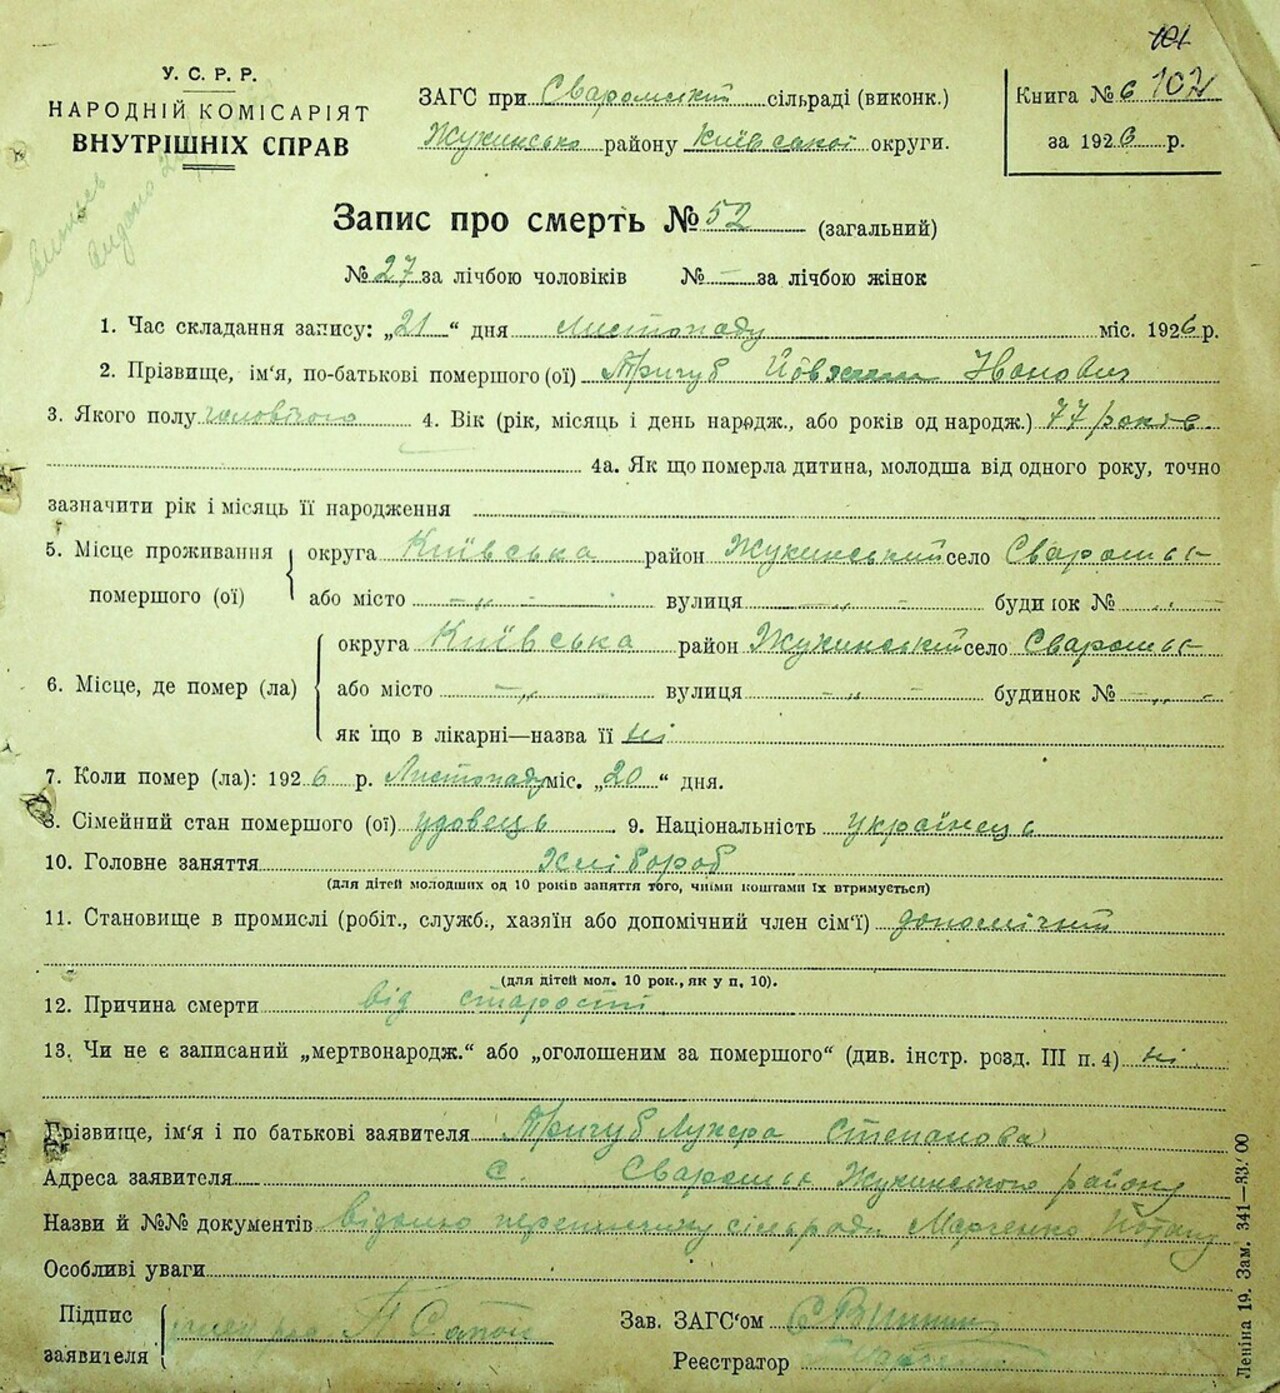 101
У. С. Р. Р.
НАРОДНІЙ КОМІСАРІЯТ
ВНУТРІШНІХ СПРАВ
ЗАГС при Сваромській сільраді (виконк.)
Жукинсько району Київської округи.
Книга № 6 102
за 1926 р.
Запис про смерть № 52 (загальний)
№ 27 за лічбою чоловіків № — за лічбою жінок
1. Час складання запису: „21“ дня Листопаду міс. 1926 р.
2. Прізвище, ім‘я, по-батькові помершого (ої) Тригуб Іванович
3. Якого полу чоловічого 4. Вік (рік, місяць і день народж., або років од народж.) 77 років
4а. Як що померла дитина, молодша від одного року, точно
зазначити рік і місяць її народження
5. Місце проживання помершого (ої) округа Київська район Жукинський село Сваромьє
або місто — „ — вулиця — „ — будинок № — „ —
6. Місце, де помер (ла) округа Київська район Жукинський село Сваромьє
або місто — „ — вулиця — „ — будинок № — „ —
як що в лікарні—назва її ні
7. Коли помер (ла): 1926 р. Листопаду міс. „20“ дня.
8. Сімейний стан помершого (ої) удовець 9. Національність українець
10. Головне заняття Хлібороб
(для дітей молодших од 10 років заняття того, чиїми коштами їх втримується)
11. Становище в промислі (робіт., служб., хазяїн або допомічний член сім‘ї) допомічний
(для дітей мол. 10 рок., як у п. 10).
12. Причина смерти від старости
13. Чи не є записаний „мертвонародж.“ або „оголошеним за помершого“ (див. інстр. розд. III п. 4) ні
Прізвище, ім‘я і по батькові заявителя Тригуб Лукера Степанова
Адреса заявителя с. Сваромьє Жукинського району
Назви й №№ документів відомо сільради Марченко
Особливі уваги
Підпис заявителя П Сапон
Зав. ЗАГС‘ом
Реєстратор
Леніна 19. Зам. 341—83.000